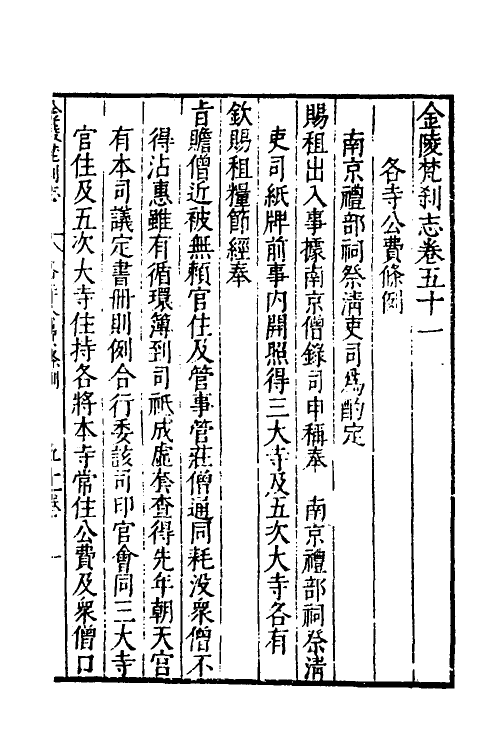 金陵梵刹志卷五十一
各寺公費條例
南京禮部祠祭淸吏司爲酌定
賜租出入事據南京僧錄司申稱奉　南京禮部祠祭淸
吏司紙牌前事内開照得三大寺及五次大寺各有
欽賜租糧節經奉
旨贍僧近被無賴官住及管事管莊僧通同耗没衆僧不
得沾惠雖有循環簿到司祇成虛套查得先年朝天宫
有本司議定書冊則例合行委該司印官會同三大寺
官住及五次大寺住持各將本寺常住公費及衆僧口